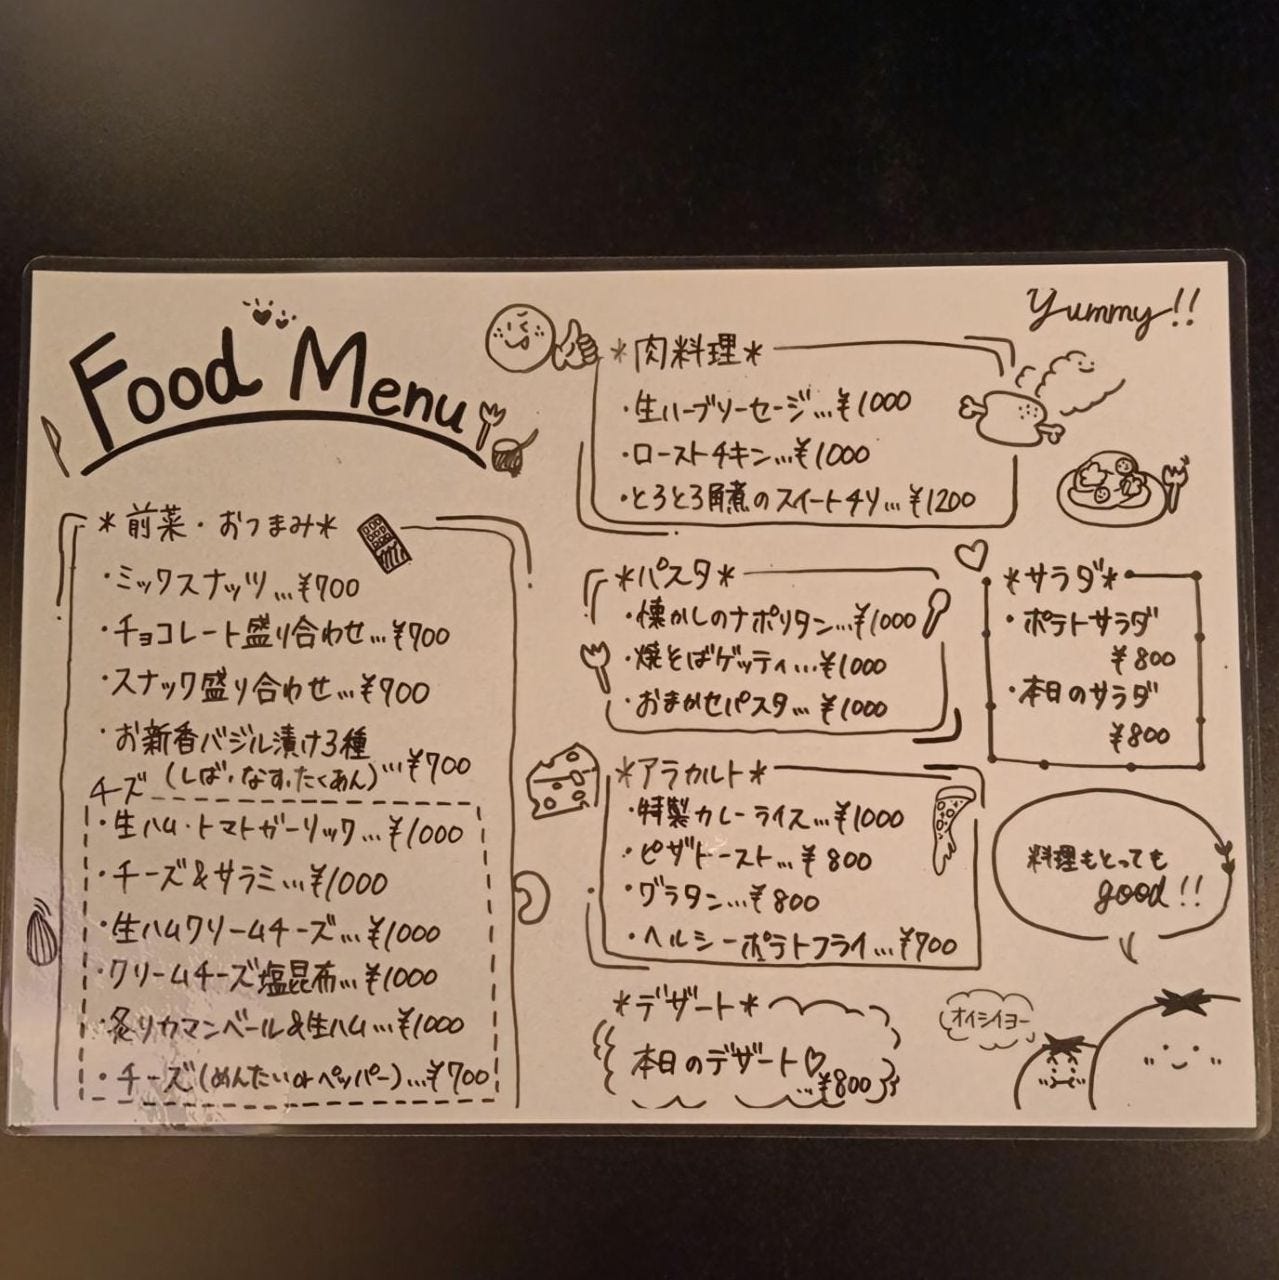 Food Menu
＊前菜・おつまみ＊
・ミックスナッツ...¥700
・チョコレート盛り合わせ...¥700
・スナック盛り合わせ...¥700
・お新香バジル漬け3種
(しば・なす・たくあん)...¥700
チーズ
・生ハム・トマトガーリック...¥1000
・チーズ&サラミ...¥1000
・生ハムクリームチーズ...¥1000
・クリームチーズ塩昆布...¥1000
・炙りカマンベール&生ハム...¥1000
・チーズ(めんたいorペッパー)...¥700
Yummy!!
＊肉料理＊
・生ハーブソーセージ...¥1000
・ローストチキン...¥1000
・とろとろ角煮のスイートチリ...¥1200
＊パスタ＊
・懐かしのナポリタン...¥1000
・焼そばゲッティ...¥1000
・おまかせパスタ...¥1000
＊サラダ＊
・ポテトサラダ
¥800
・本日のサラダ
¥800
＊アラカルト＊
・特製カレーライス...¥1000
・ピザトースト...¥800
・グラタン...¥800
・ヘルシーポテトフライ...¥700
料理もとっても
good!!
＊デザート＊
本日のデザート♡
...¥800
オイシイヨー